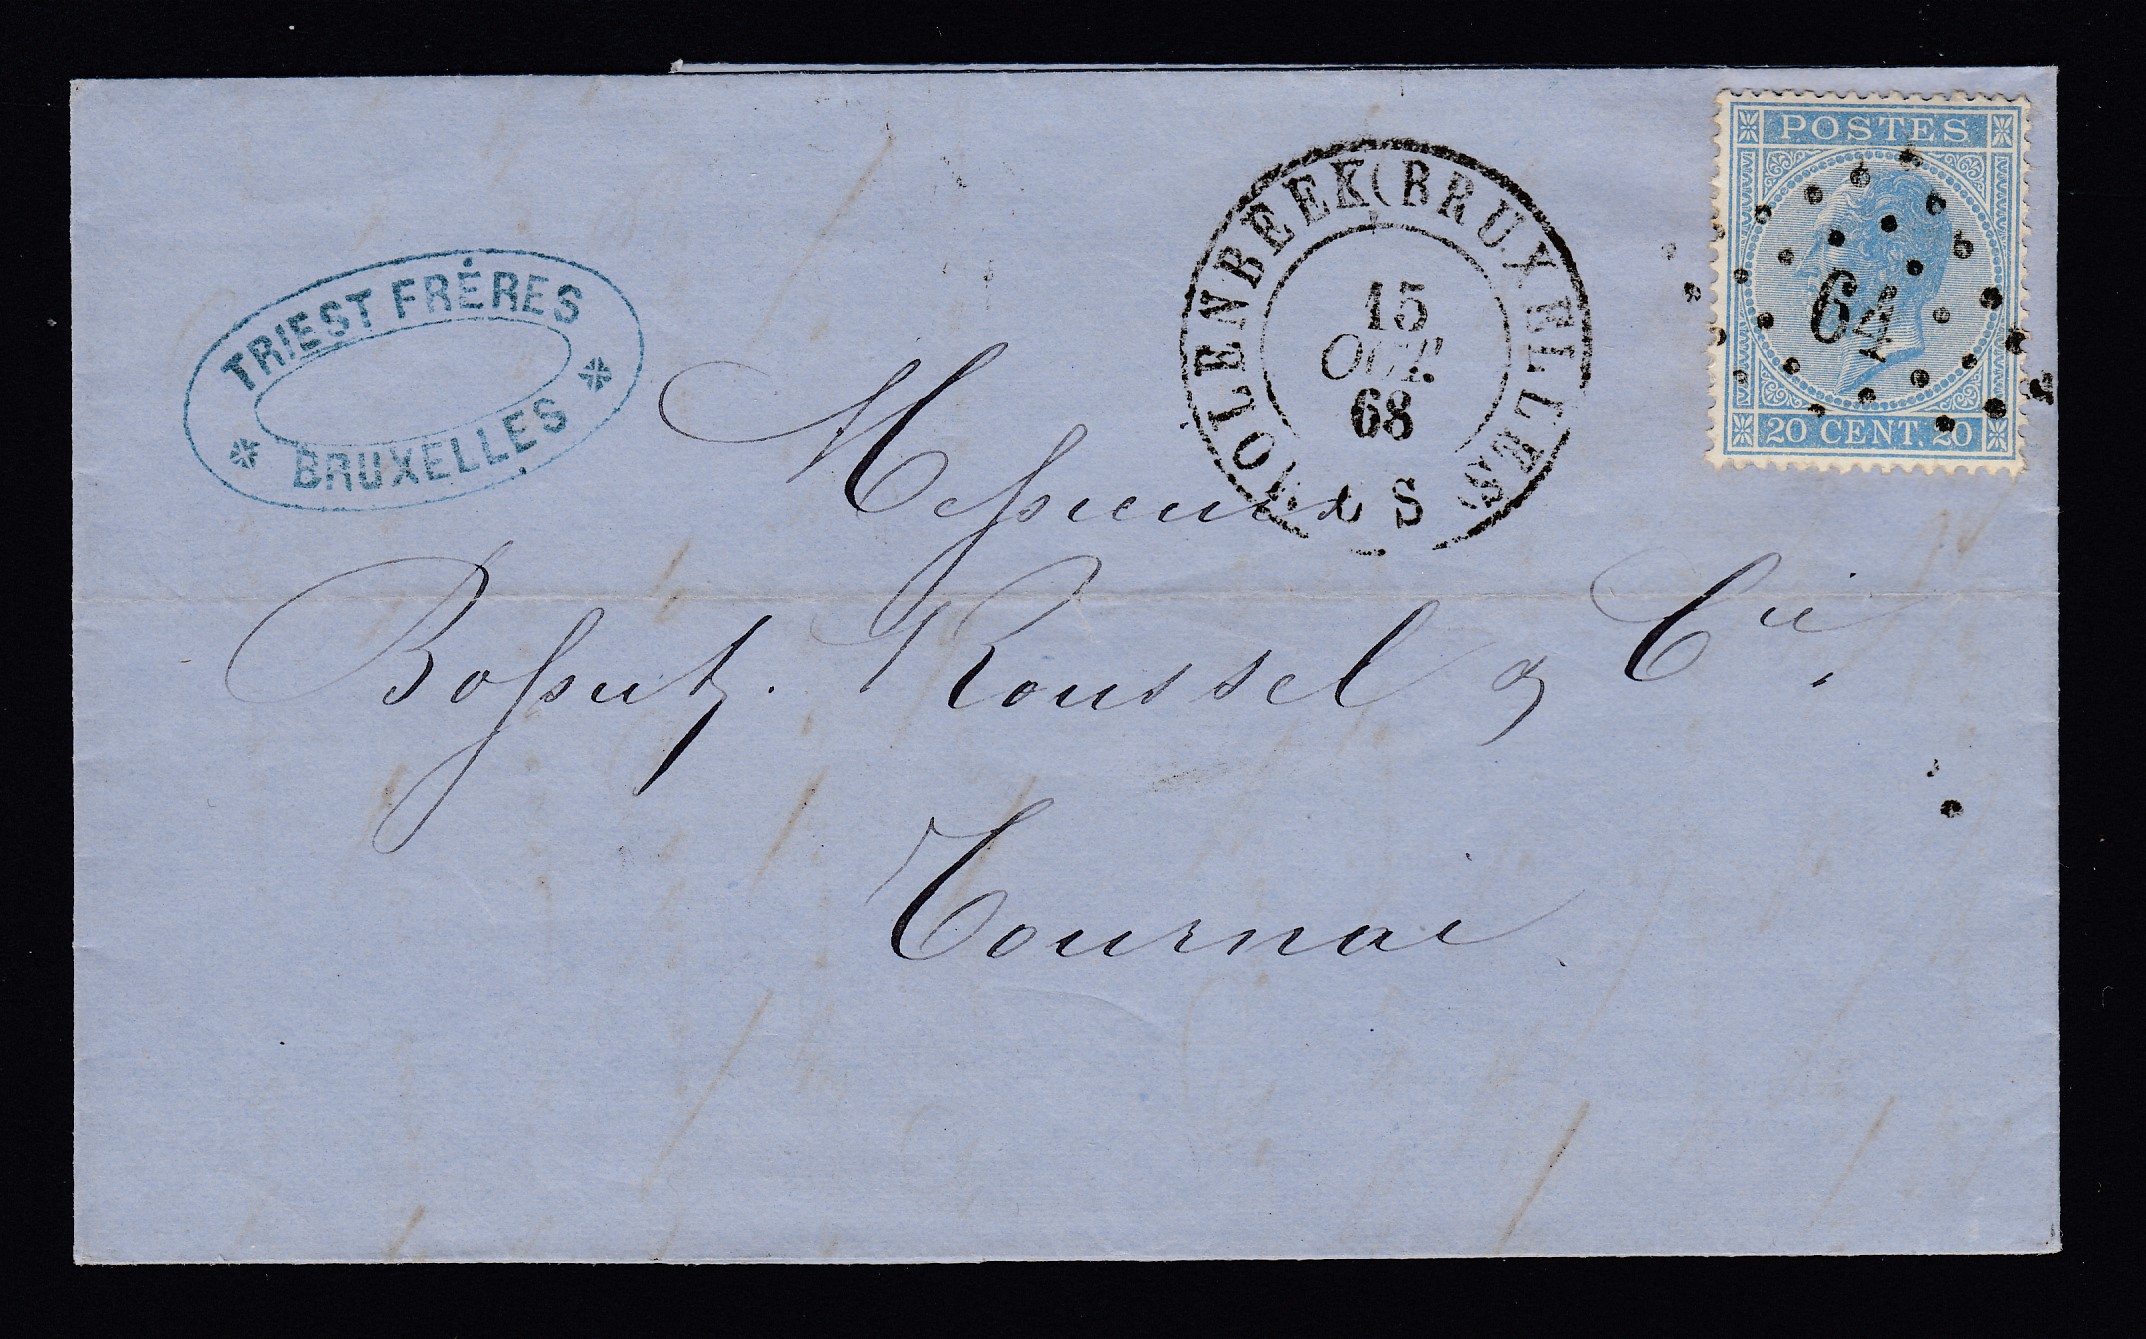 POSTES
64
20 CENT. 20
MOLENBEEK (BRUXELLES)
15
OCT.
68
S
TRIEST FRÉRES
BRUXELLES
Messieurs
Bossut. Roussel & Cie.
Tournai